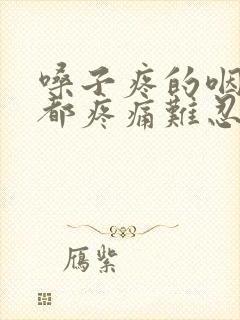 嗓子疼的咽
都疼痛難忍
鴈紫